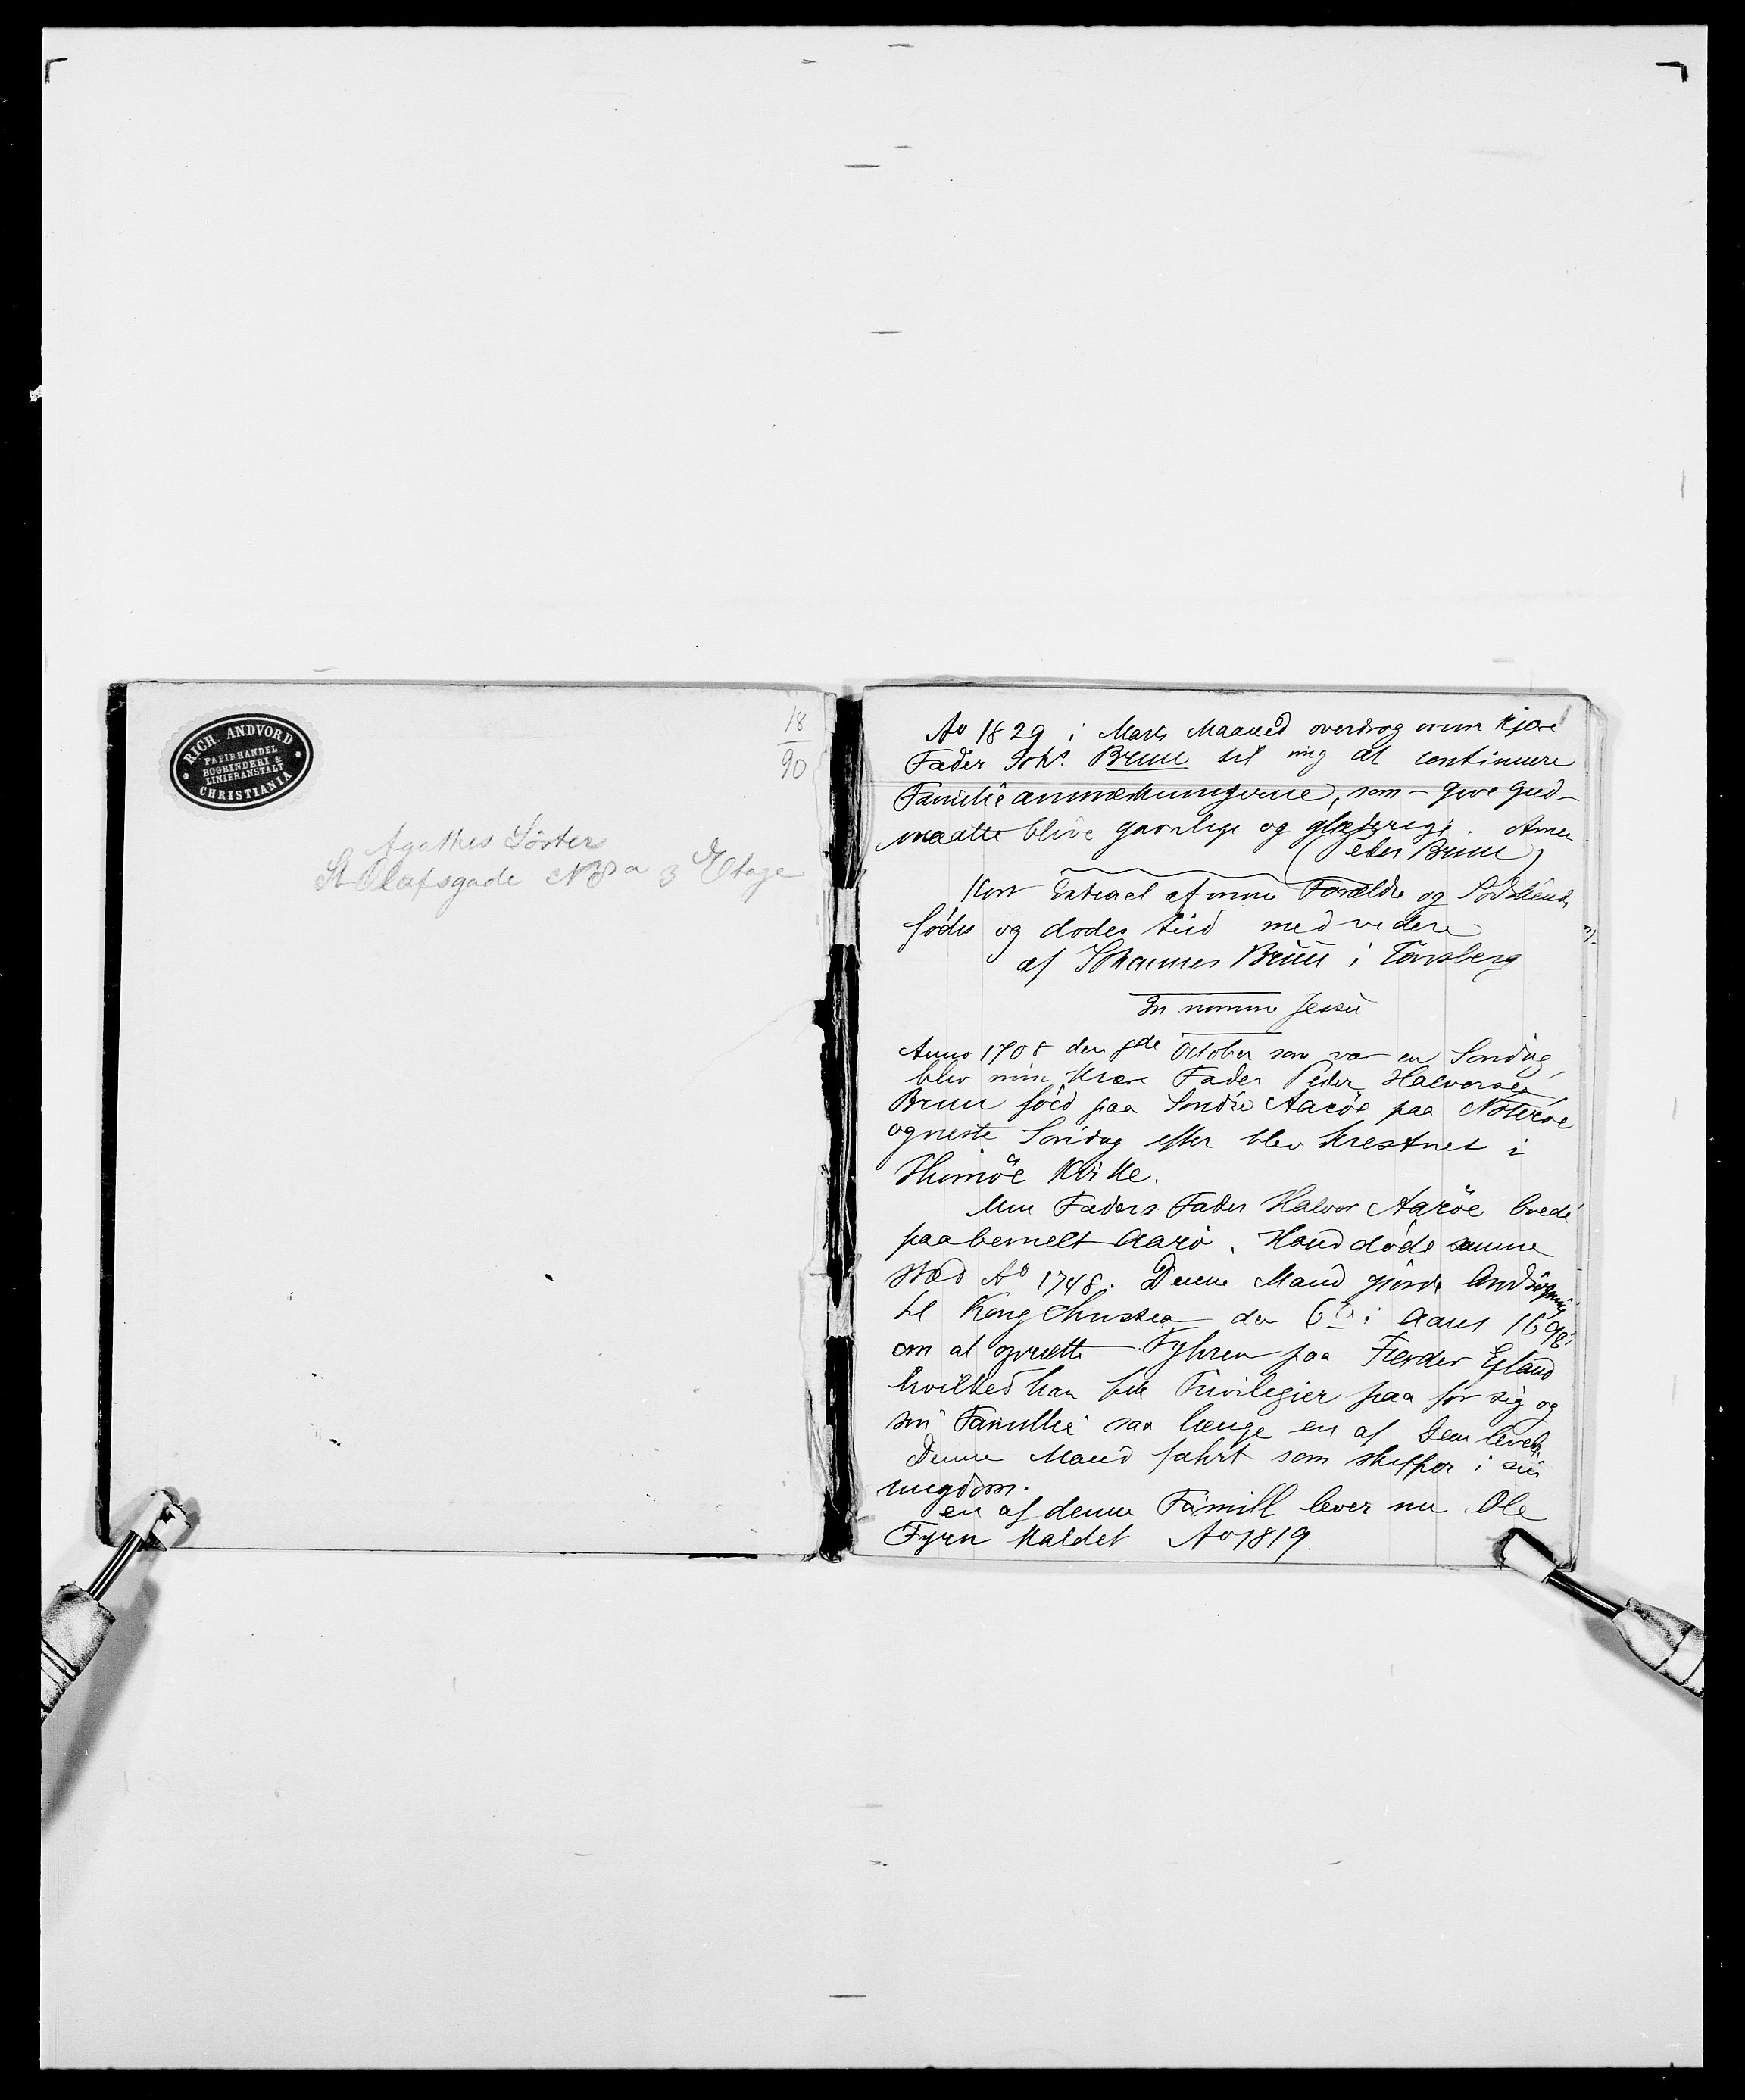 RICH. ANDVORD
PAPIRHANDEL
BOGBINDERI &
LINIERANSTALT
CHRISTIANIA
18
90
Agathes Söster
St Olafsgade N 8 a 3 Etage
Ao 1829 i Marts Maaned overdrog min kjære
Fader Johs. Bruu til mig at continuere
Familieanmærkningerne, som – give Gud –
maatte blive gavnlige og glæderige. Amen
(Peder Bruu)
Kort Extract af mine Forældre og Södskends
födes og dödes tiid med videre
af Johannes Bruu i Tönsberg
In nomine Jessu
Anno 1708 den 8de October som var en Söndag,
blev min Kiære Fader Peder Halvorsen
Bruu föed paa Söndre Aaröe paa Nöteröe
og neste Söndag efter blev Krestnet i
Thiömöe Kirke.
Min Faders Fader Halvor Aaröe boede
paa bemelt Aarö. Hand döde samme
stæd Ao 1748. Denne Mand giorde Andsögning
til Kong Christian den 6te i Aaret 1698
om at oprette Fyhren paa Færder Eyland
hvilked han fik Privilegier paa for sig og
sin Famillie saa længe en af dem levede
Denne Mand fahrt som skipper i sin
ungdom.
en af denne Famill lever nu Ole
Fyrn kaldet Ao 1819.